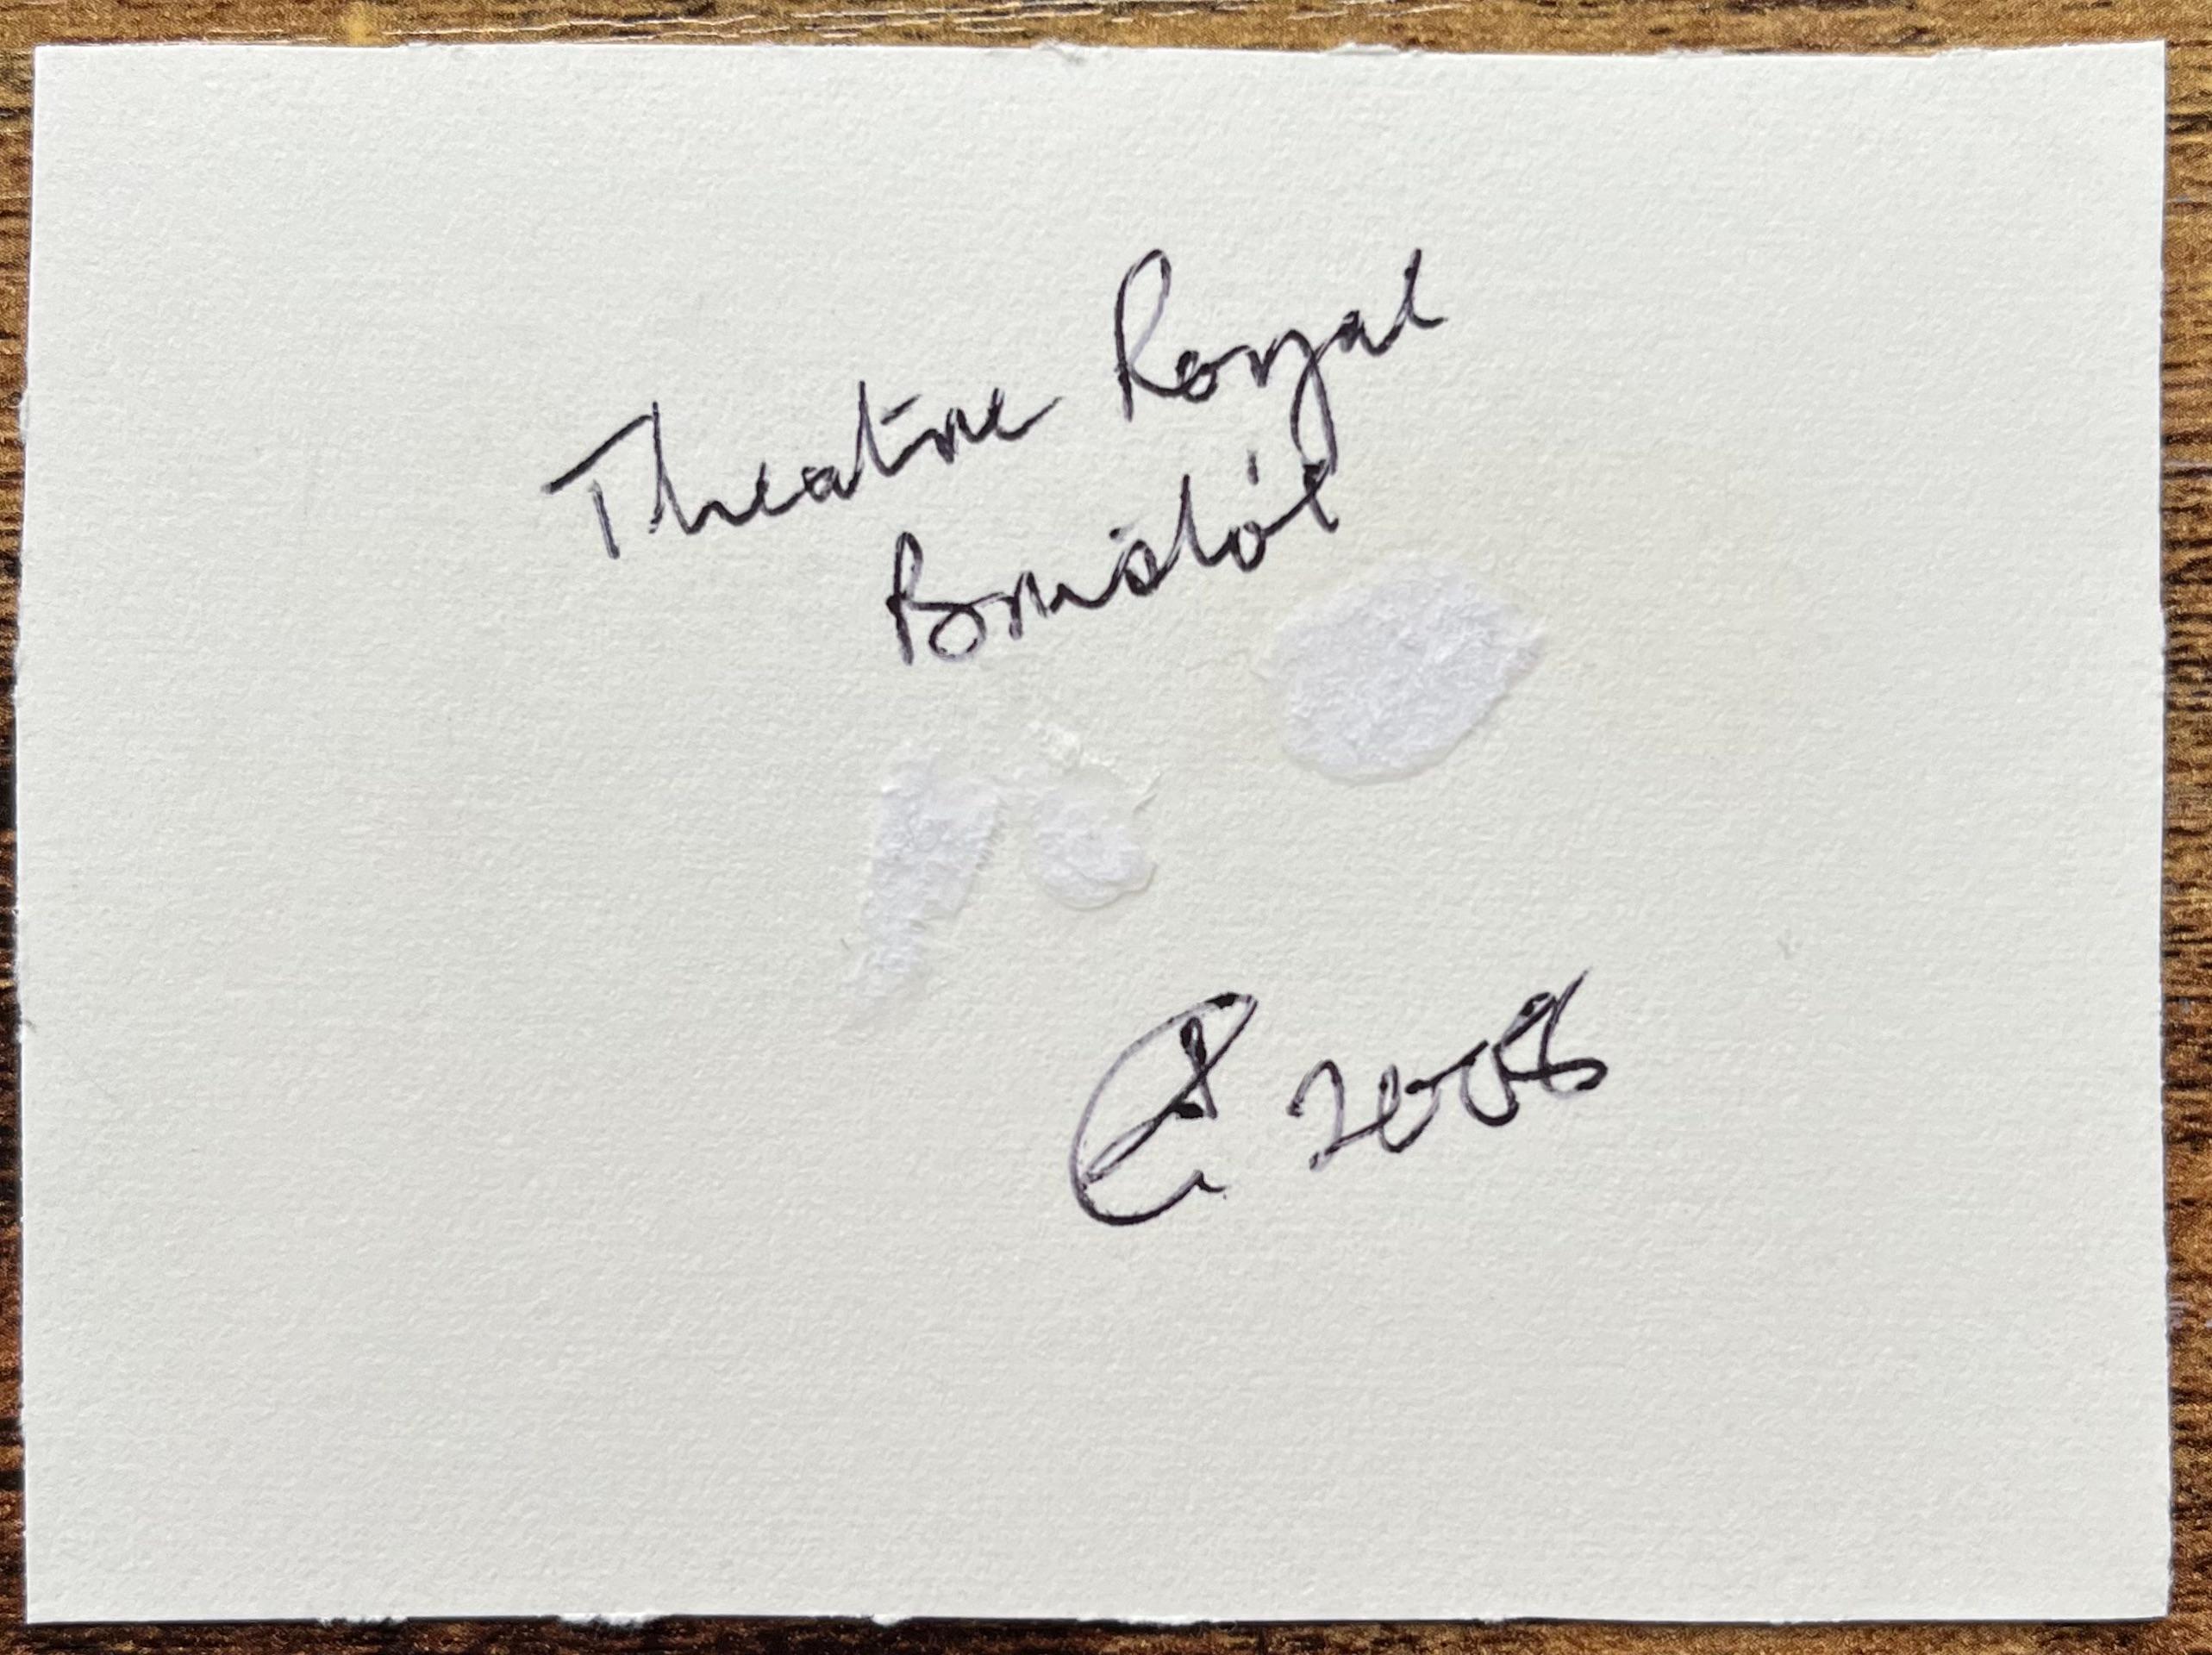 Theatre Royal
Bristol
2008